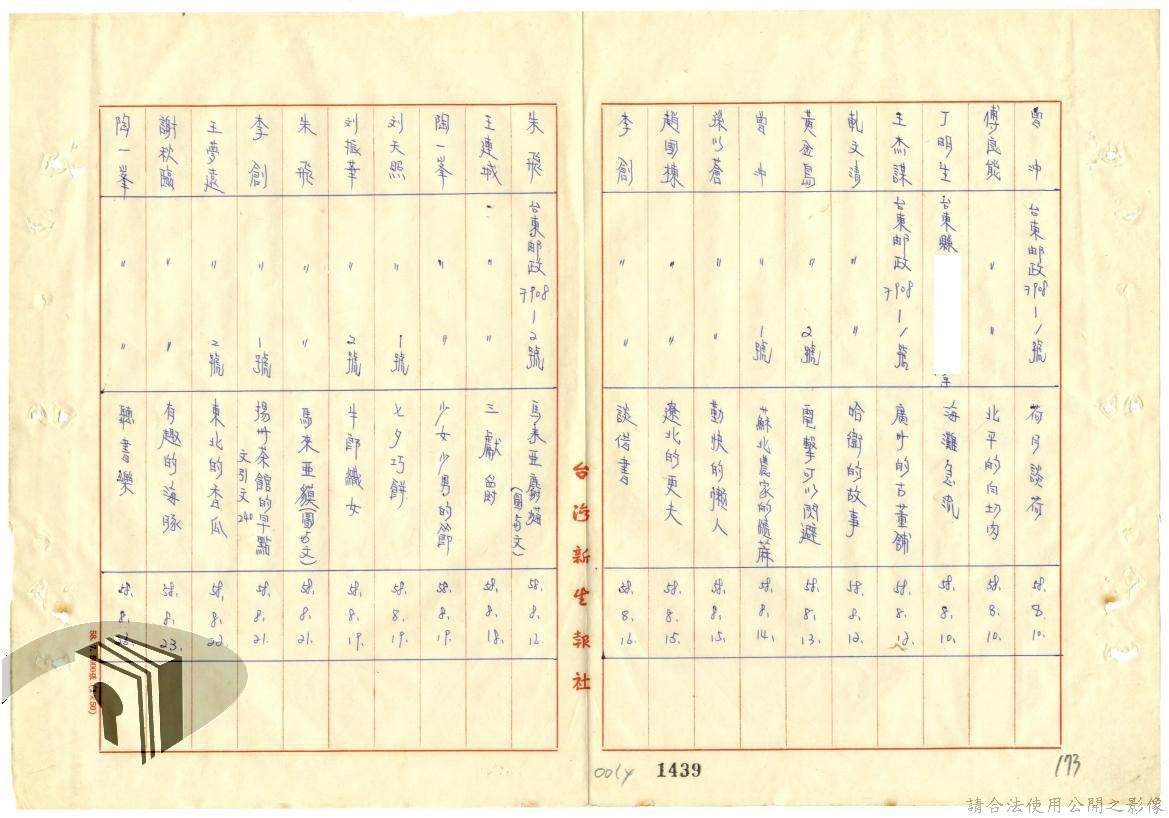 曾冲 台東邮政7908-1/號 荷月談荷 58.8.10.
傅良能 〃 〃 北平的白切肉 58.8.10.
丁明生 台東縣 海灘急流 58.8.10.
王杰謀 台東邮政7908-1/號 廣州的古董舖 58.8.12.
軋文清 〃 〃 哈衛的故事 58.8.12.
黃金島 〃 2號 電擊可以閃避 58.8.13.
曾冲 〃 1號 蘇北農家的 58.8.14.
孫以蒼 〃 〃 勤快的懶人 58.8.15.
趙國棟 〃 〃 遼北的更夫 58.8.15.
李創 〃 〃 談借書 58.8.16.
台湾新生報社
朱飛 台東邮政7908-2號 馬來亞麝貓(圖與文) 58.8.16.
王連城 〃 〃 三獻爵 58.8.18.
陶一峯 〃 〃 少女少男的節 58.8.19.
刘天照 〃 1號 七夕巧餅 58.8.19.
刘振華 〃 2號 牛郎織女 58.8.19.
朱飛 〃 〃 馬來亞貘(圖与文) 58.8.21.
李創 〃 1號 揚州茶館的早點 文引文240 58.8.21.
王夢遠 〃 2號 東北的香瓜 58.8.22.
謝秋臨 〃 〃 有趣的海豚 58.8.23.
陶一峯 〃 〃 聽書樂 58.8.
0014 1439
173
請合法使用公開之影像